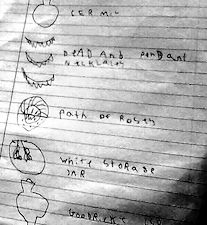 CERMIC
DEAD AND PENDANT
NECKLACES
PATH OF ROSES
WHITE STORAGE
JAR